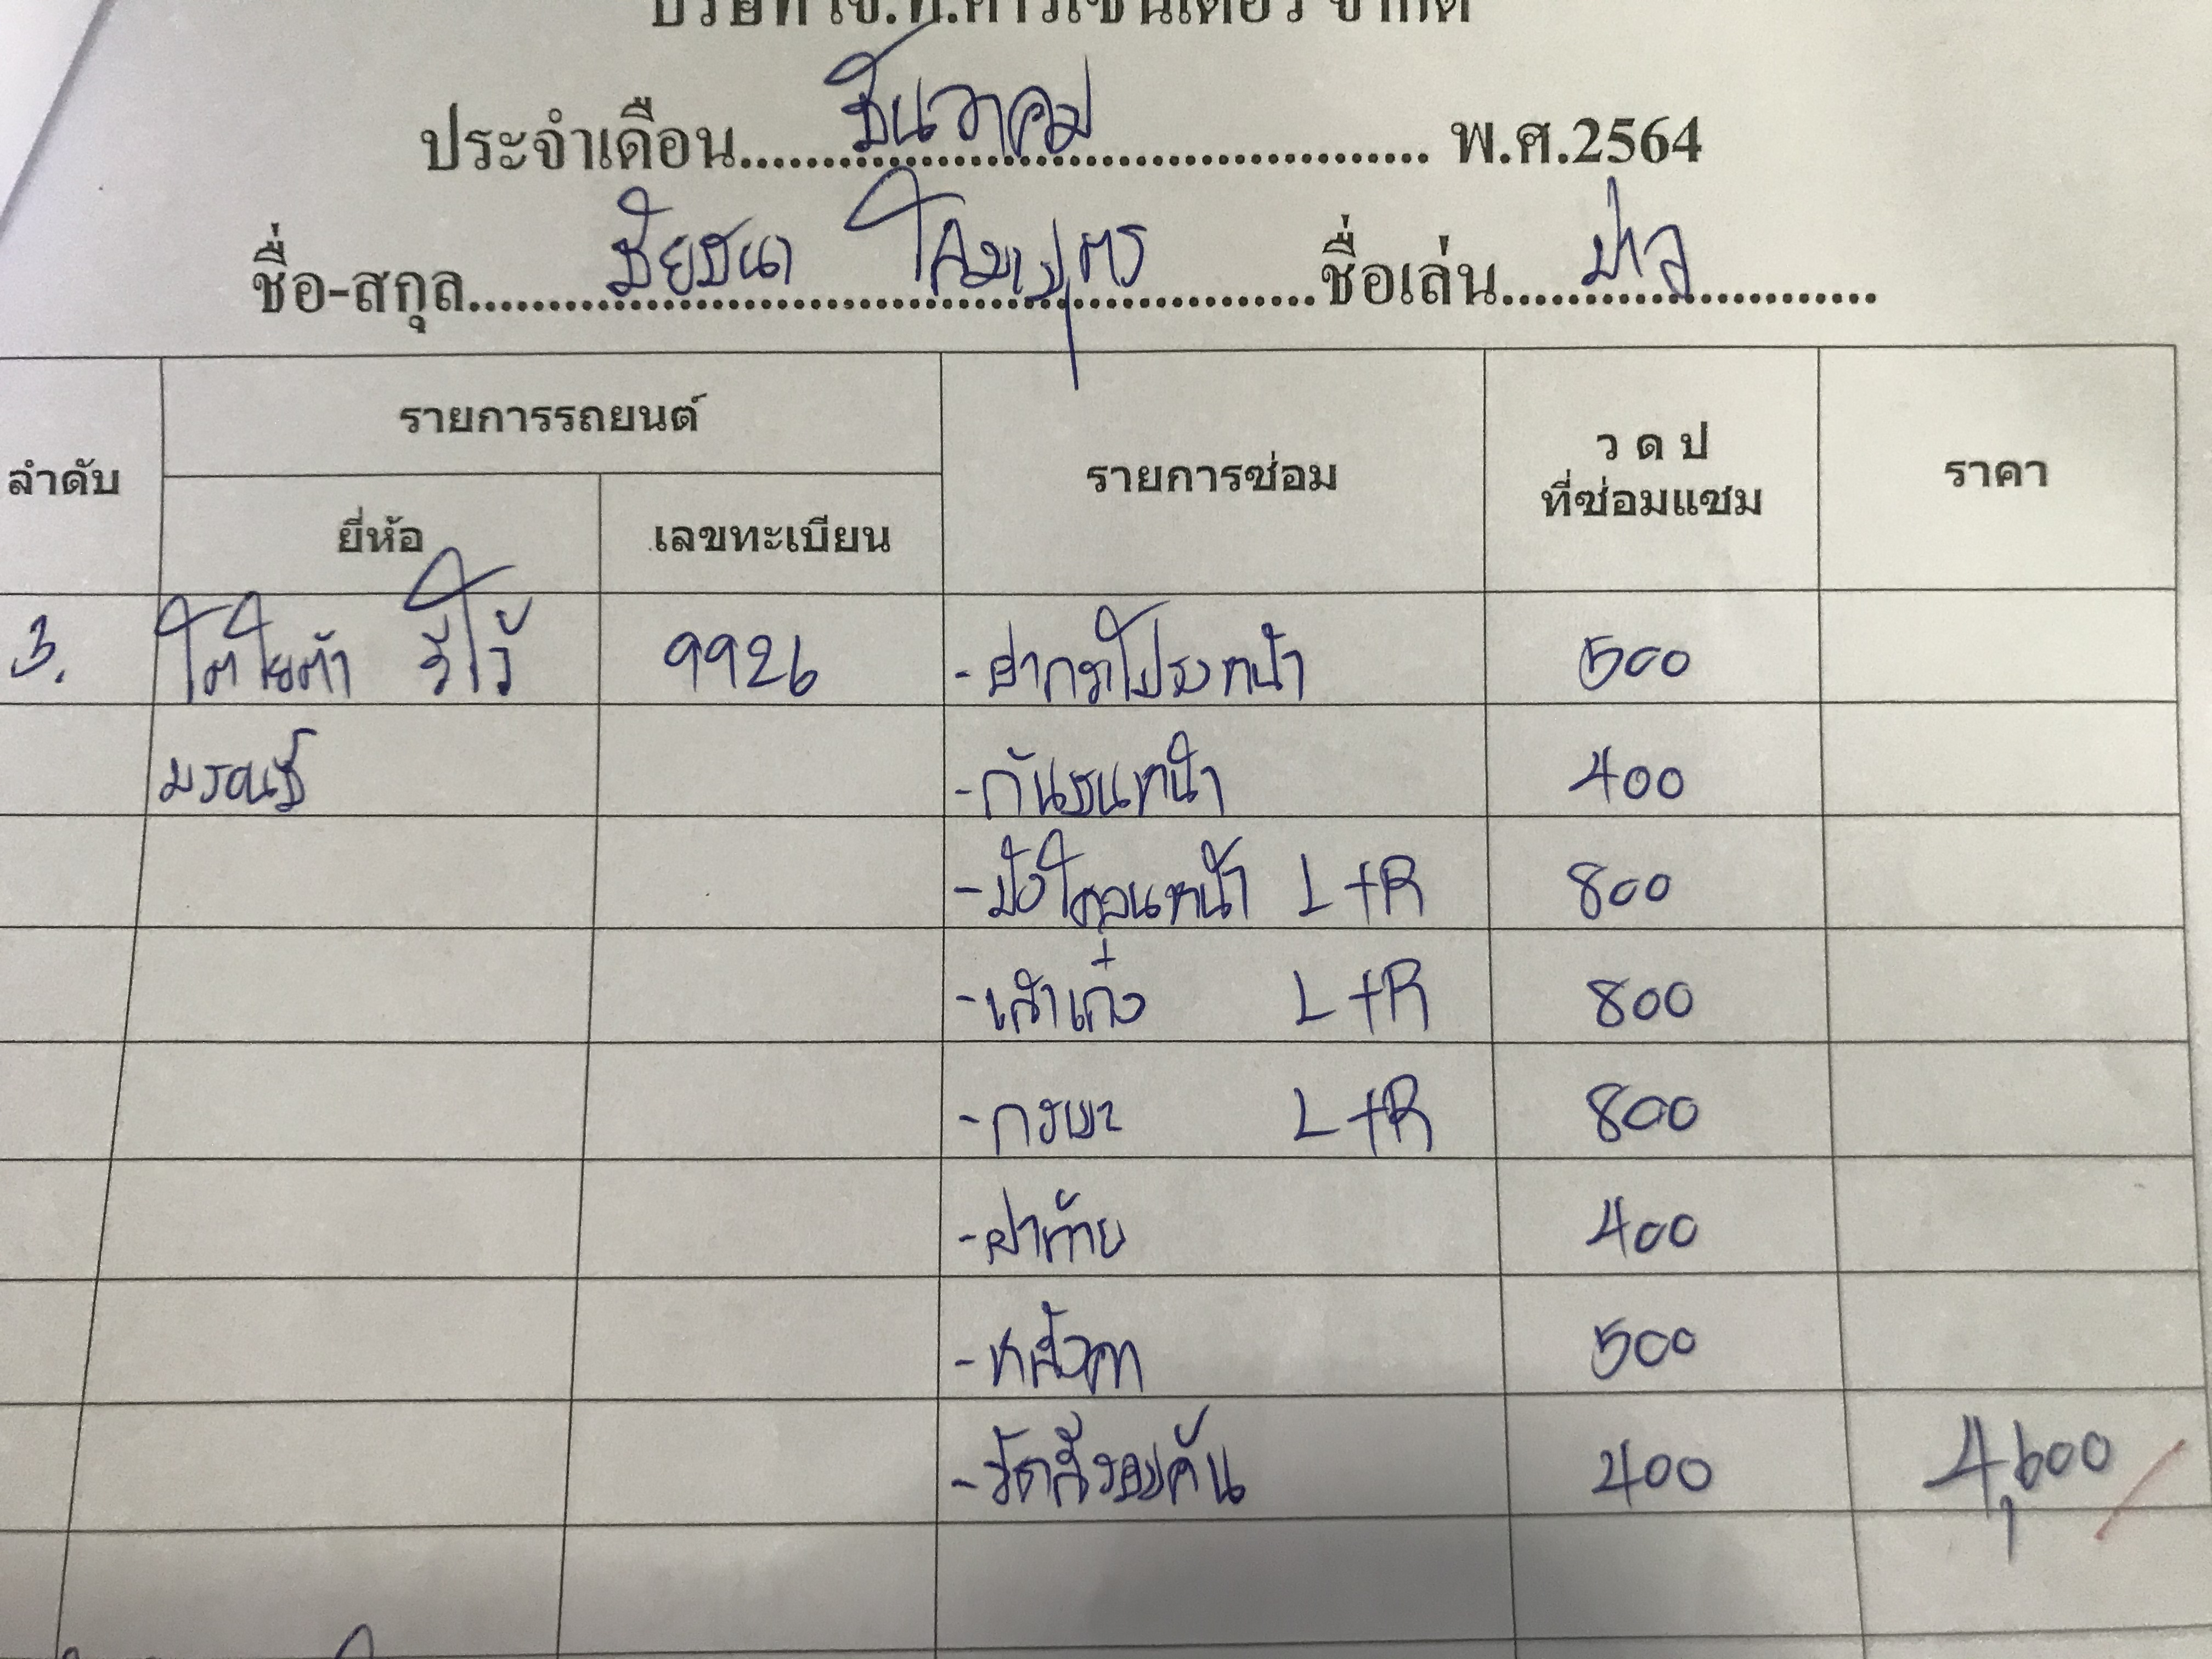 ประจำเดือน ธันวาคม พ.ศ.2564
ชื่อ-สกุล ชัยชนา โคมบุตร ชื่อเล่น ปาล
ลำดับ รายการรถยนต์ รายการซ่อม ว ด ป ที่ซ่อมแซม ราคา
ยี่ห้อ เลขทะเบียน
3. โตโยต้า วีโก้ 9926 -ฝากระโปรงหน้า 500
-กันชนหน้า 400
-บังโคลนหน้า L+R 800
-เสาเก๋ง L+R 800
-กระบะ L+R 800
-ฝาท้าย 400
-หลังคา 500
-ขัดสีรอบคัน 400 4,600